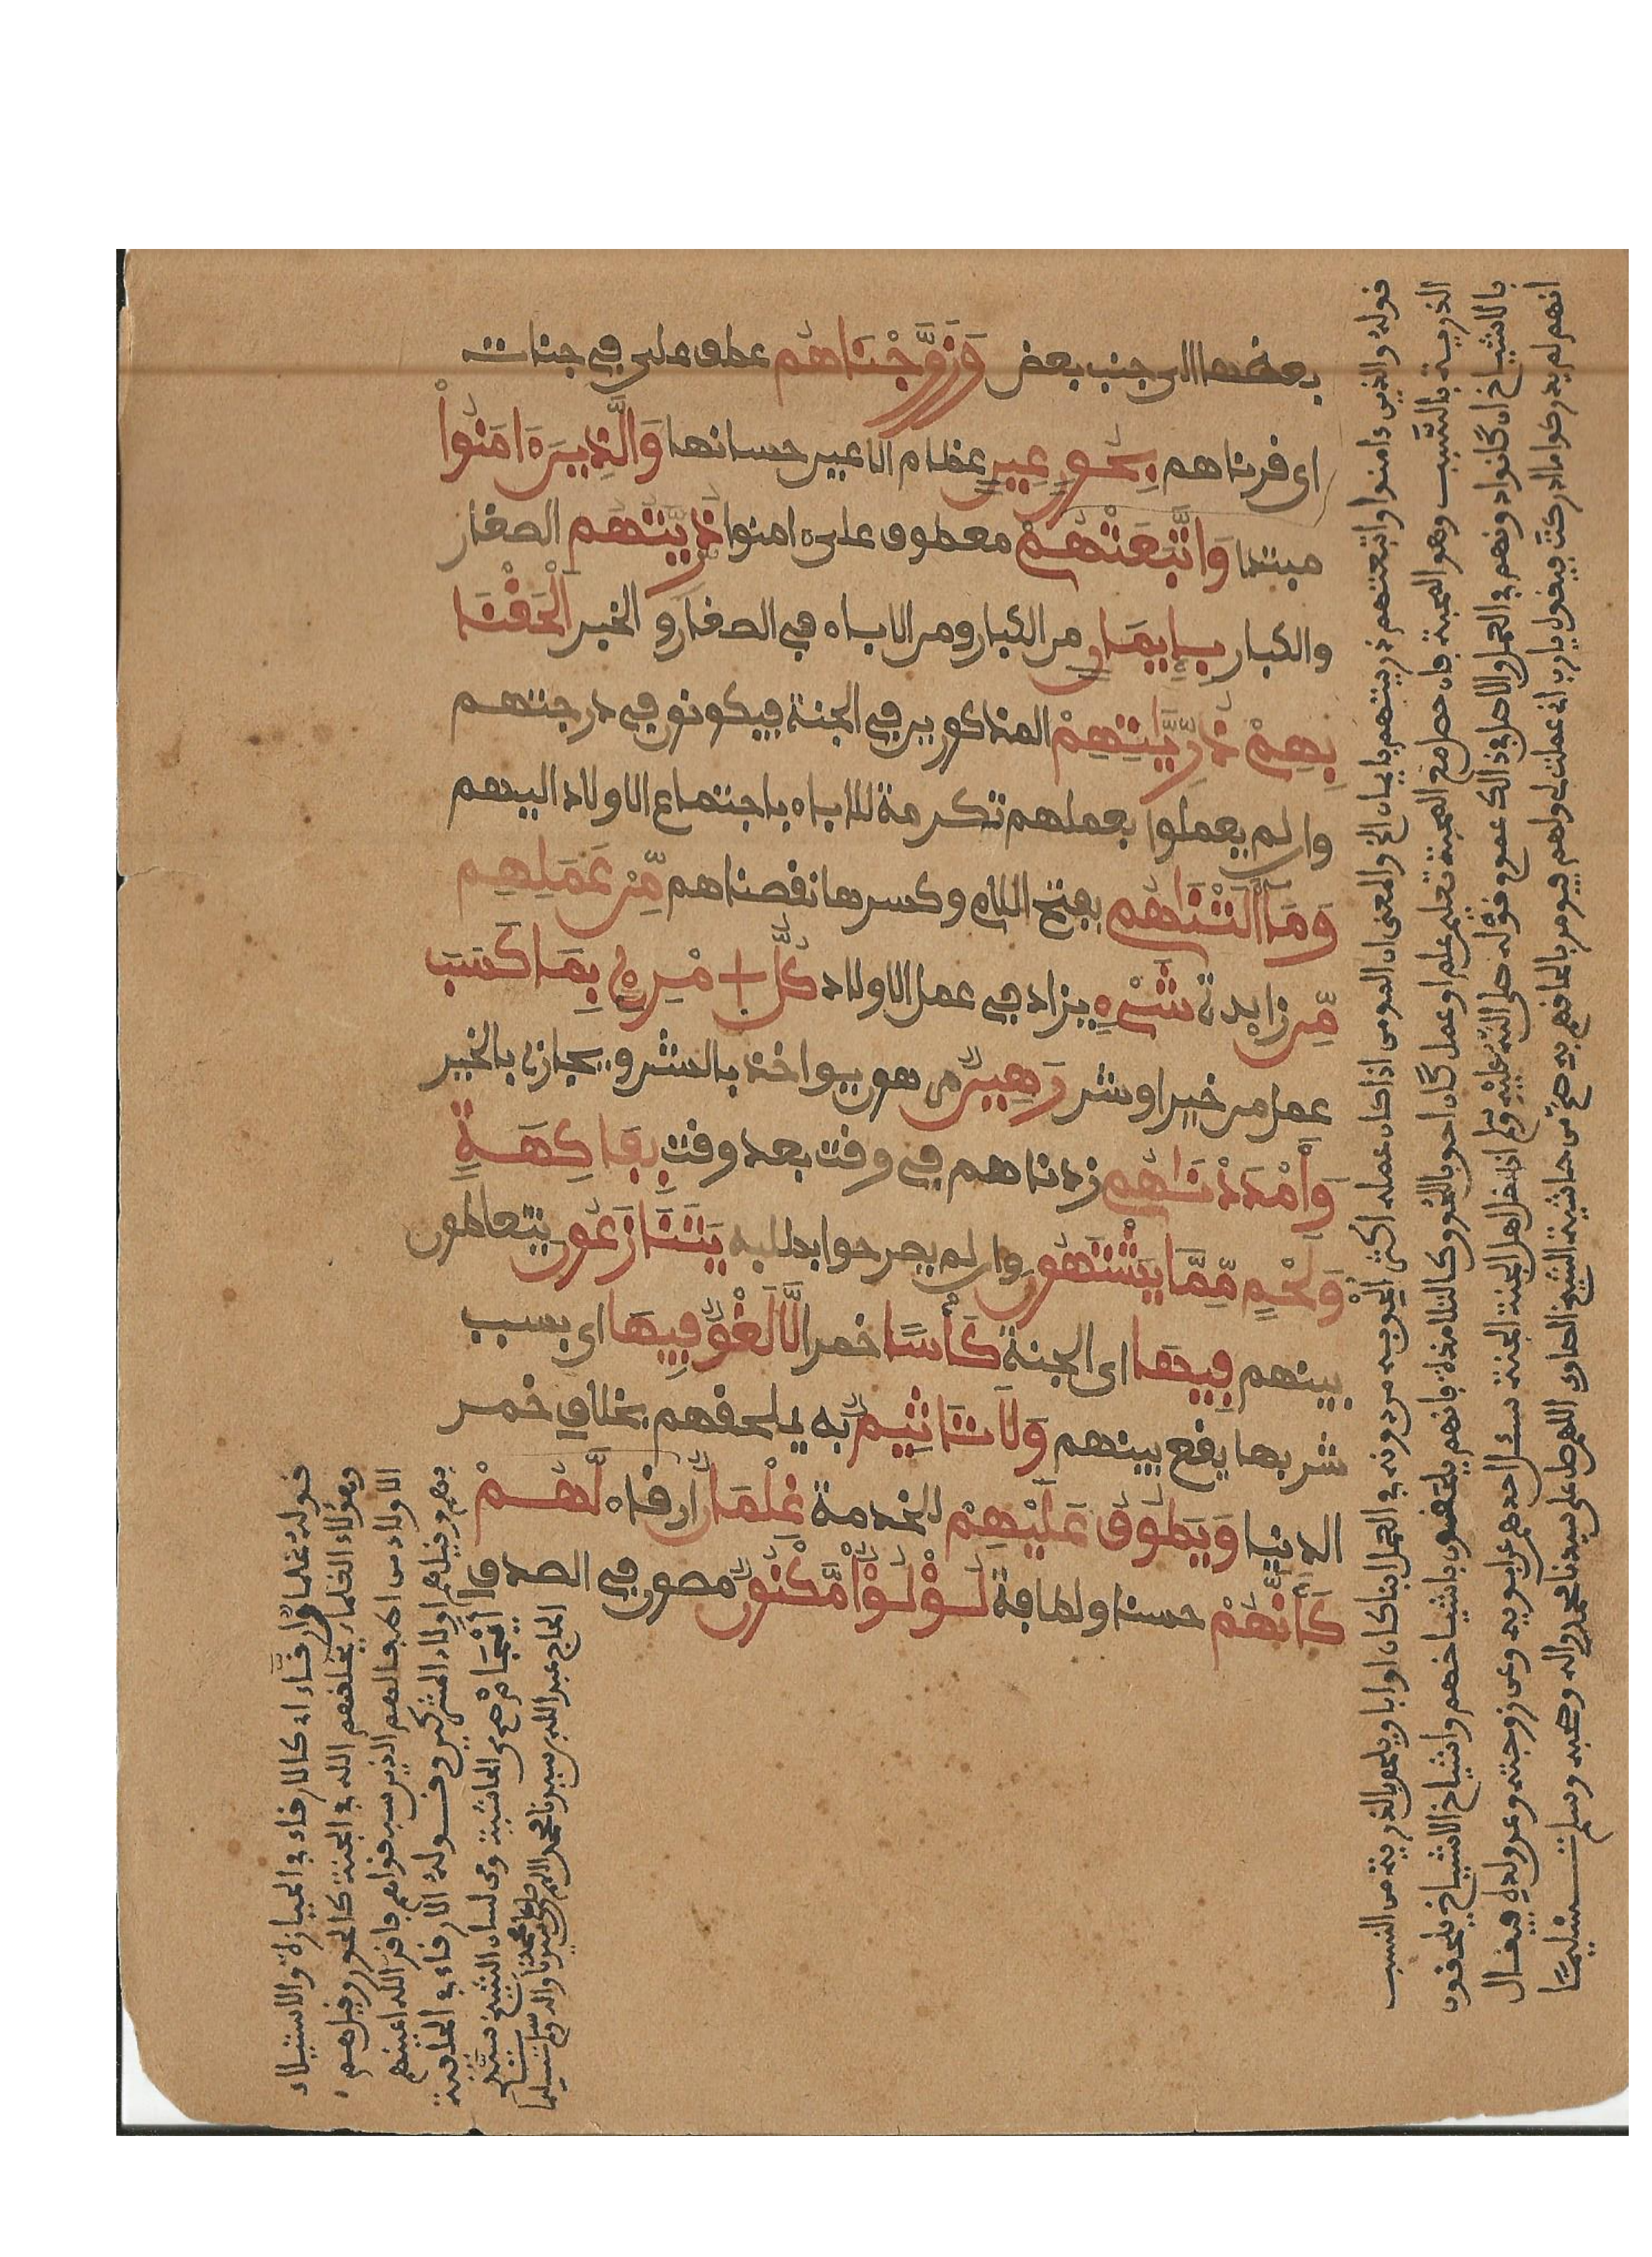 بعضها الى جنب بعض وَزَوَّجْنَاهُم عطف على في جنات
اى قرناهم بِحُورٍ عِينٍ عظام الاعين حسانها وَالَّذِينَ ءَامَنُواْ
مبتدا وَاتَّبَعَتْهُمْ معطوف على امنوا ذُرِّيَّتُهُم الصغار
والكبار بِإِيمَانٍ من الكبار ومن الاباء في الصغار و الخبر أَلْحَقْنَا
بِهِمْ ذُرِّيَّتِهِمْ المذكورين في الجنة فيكونون في درجتهم
وان لم يعملوا بعملهم تكرمة للاباء باجتماع الاولاد اليهم
وَمَا أَلَتْنَاهُم بفتح اللام وكسرها نقصناهم مِّنْ عَمَلِهِم
مِّن زايدة شَيْءٍ يزاد في عمل الاولاد كُلُّ امْرِئٍ بِمَا كَسَبَ
عمل من خير او شر رَهِينٌ مرهون يواخذ بالشر ويجازى بالخير
وَأَمْدَدْنَاهُم زدناهم في وقت بعد وقت بِفَاكِهَةٍ
وَلَحْمٍ مِّمَّا يَشْتَهُونَ وان لم يصرحوا بطلبه يَتَنَازَعُونَ يتعاطون
بينهم فِيهَا اى الجنة كَأْسًا خمرا لَّا لَغْوٌ فِيهَا اى بسبب
شربها يقع بينهم وَلَا تَاثِيمٌ به يلحقهم بخلاف خمر
الدنيا وَيَطُوفُ عَلَيْهِمْ للخدمة غِلْمَانٌ ارقاء لَّهُمْ
كَأَنَّهُمْ حسنا ولطافة لُؤْلُؤٌ مَّكْنُونٌ مصون في الصدف
قوله والذين ءامنوا واتبعتهم ذريتهم بايمان الخ والمعنى ان المومن اذا كان عمله اكثر الحق به من دونه في العمل ابنا كان او ابا ويلحق بالذرية من النسب
الذرية بالسبب وهو المحبة فان حصل مع المحبة تعليم علم او عمل كان احق بالحوق كالتلامذة فانهم يلحقون باشياخهم واشياخ الاشياخ يلحقون
بالاشياخ ان كانوا دونهم في العمل والاصل في ذالك عموم قوله صلى الله عليه وسلم اذا دخل اهل الجنة الجنة سئل احدهم عن ابويه وعن زوجته وعن ولده فيقال
انهم لم يدركوا ما ادركت فيقول يارب اني عملت لي ولهم فيومر بالحاقهم به صح من حاشية الشيخ الصاوى اللهم صل على سيدنا محمد واله وصحبه وسلم تسليما
قوله غلمان ارقاء اى كالارقاء في الحيازة والاستيلاء
وهؤلاء الغلمان يخلقهم الله في الجنة كالحور وقيل هم
الاولاد من اطفالهم الذين سبقوهم فاقر الله اعينهم
بهم وقيل هم اولاد المشركين وقوله الارقاء في الخلقة